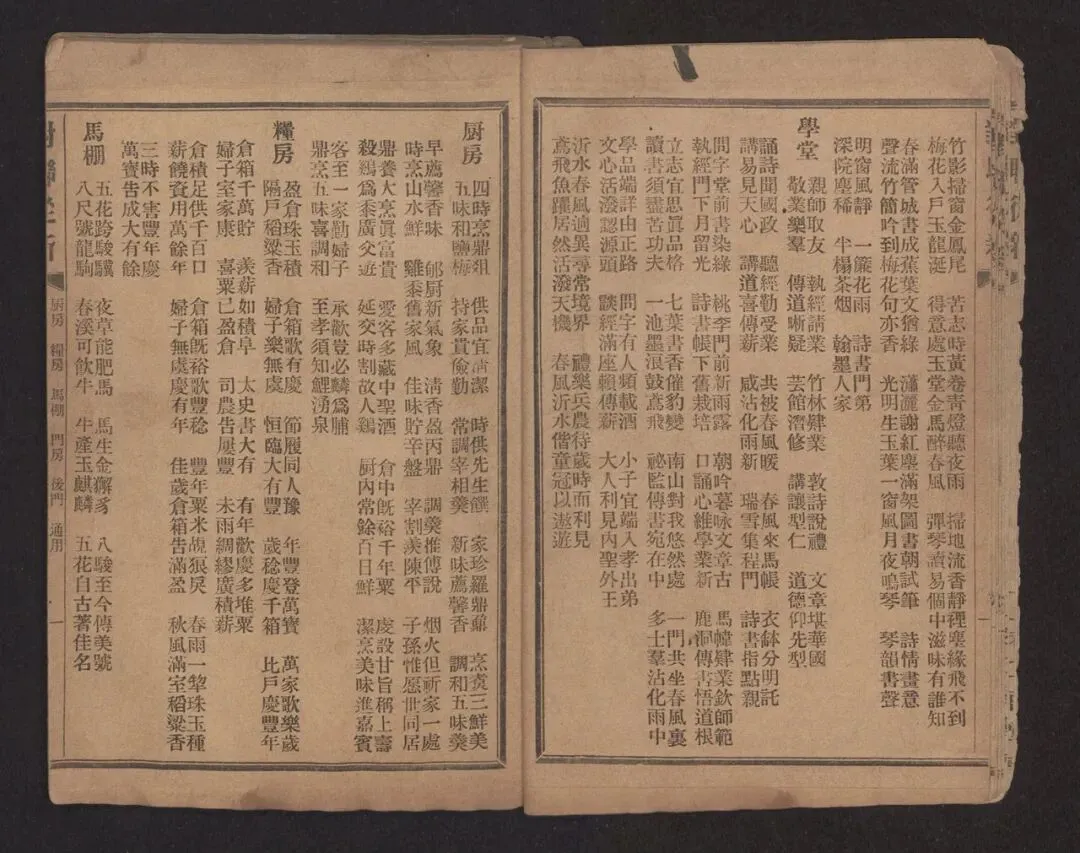 竹影掃窗金鳳尾　苦志時黃卷青燈聽夜雨　掃地流香靜裡塵緣飛不到
梅花入戶玉龍涎　得意處玉堂金馬醉春風　彈琴讀易個中滋味有誰知
春滿管城書成蕉葉文猶綠　瀟灑謝紅塵滿架圖書朝試筆　詩情畫意
聲流竹簡吟到梅花句亦香　光明生玉葉一窗風月夜鳴琴　琴韻書聲
明窗風靜　一簾花雨　詩書門第
深院塵稀　半榻茶烟　翰墨人家
學堂
親師取友　執經請業　竹林肄業　敦詩說禮　文章堪華國
敬業樂羣　傳道晰疑　芸館潛修　講讓型仁　道德仰先型
誦詩聞國政　聽經勤受業　共被春風暖　春風來馬帳　衣鉢分明託
講易見天心　講道喜傳薪　咸沾化雨新　瑞雪集程門　詩書指點親
問字堂前書染綠　桃李門前新雨露　朝吟暮咏文章古　馬幃肄業欽師範
執經門下月留光　詩書帳下舊栽培　口誦心維學業新　鹿洞傳書悟道根
立志宜思眞品格　七葉書香催豹變　南山對我悠然處　一門共坐春風裏
讀書須盡苦功夫　一池墨浪鼓鳶飛　祕監傳書宛在中　多士羣沾化雨中
學品端詳由正路　問字有人頻載酒　小子宜端入孝出弟
文心活潑認源頭　談經滿座賴傳薪　大人利見內聖外王
沂水春風適異尋常境界　禮樂兵農待歲時而利見
鳶飛魚躍居然活潑天機　春風沂水偕童冠以遨遊
厨房
四時烹鼎俎　供品宜清潔　時供先生饌　家珍羅鼎鼐　烹炙三鮮美
五味和鹽梅　持家貴儉勤　常調宰相羹　新味薦馨香　調和五味羹
早薦馨香味　郇厨新氣象　清香盈丙鼎　調羹推傳說　烟火但祈家一處
時烹山水鮮　雞黍舊家風　佳味貯辛盤　宰割羨陳平　子孫惟愿世同居
鼎養大烹眞富貴　愛客多藏中聖酒　倉中旣裕千年粟　虔設甘旨稱上壽
殺鷄爲黍廣交遊　延交時割故人鷄　厨內常餘百日鮮　潔烹美味進嘉賓
客至一家勤婦子　承歡豈必麟爲脯
鼎烹五味喜調和　至孝須知鯉湧泉
糧房
盈倉珠玉積　倉箱歌有慶　節履同人豫　年豐登萬寶　萬家歌樂歲
隔戶稻粱香　婦子樂無虞　恒臨大有豐　歲稔慶千箱　比戶慶豐年
倉箱千萬貯　羨薪如積阜　太史書大有　有年歡慶多堆粟
婦子室家康　喜粟已盈倉　司農告屢豐　未雨綢繆廣積薪
倉積足供千百口　倉箱旣裕歌豐稔　豐年粟米覘狼戾　春雨一犂珠玉種
薪饒資用萬餘年　婦子無虞慶有年　佳歲倉箱告滿盈　秋風滿室稻粱香
三時不害豐年慶
萬寶告成大有餘
馬棚
五花跨駿驥　夜草能肥馬　馬生金獬豸　八駿至今傳美號
八尺號龍駒　春溪可飲牛　牛產玉麒麟　五花自古著佳名
厨房　糧房　馬棚　門房　後門　通用
一